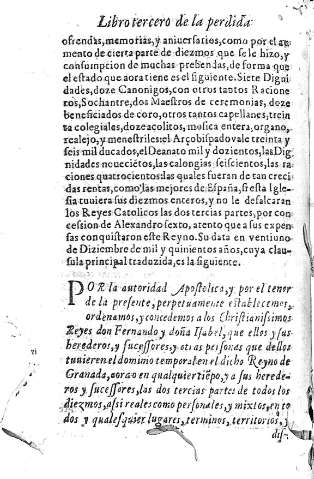 Libro tercero de la perdida
ofrendas, memorias, y aniversarios, como por el au-
mento de cierta parte de diezmos que se le hizo, y
consumpcion de muchas prebendas, de forma que
el estado que aora tiene es el siguiente. Siete Digni
dades, doze Canonigos, con otros tantos Racione
ros, Sochantre, dos Maestros de ceremonias, doze
beneficiados de coro, otros tantos capellanes, trein
ta colegiales, doze acolitos, mosica entera, organo,
realejo, y menestriles: el Arçobispado vale treinta y
seis mil ducados, el Deanato mil y dozientos, las Dig
nidades novecietos, las calongias seiscientos, las ra
ciones quatrocientos: las quales fueran de tan creci
das rentas, como las mejores de España, si esta Igle-
sia tuviera sus diezmos enteros, y no le desfalcaran
los Reyes Catolicos las dos tercias partes, por con
cession de Alexandro sexto, atento que a sus expen
sas conquistaron este Reyno. Su data en ventiuno
de Diziembre de mil y quinientos años, cuya clau-
sula principal traduzida, es la siguiente.
POR la autoridad Apostolica, y por el tenor
de la presente, perpetuamente establecemos,
ordenamos, y concedemos a los Christianissimos
Reyes don Fernando y doña Isabel, que ellos y sus
herederos, y sucessores, y otras personas que dellos
tuvieren el dominio temporal en el dicho Reyno de
Granada, aora o en qualquier tiẽpo, y a sus herede-
ros y sucessores, las dos tercias partes de todos los
diezmos, assi reales como personales, y mixtos, en to
dos y qualesquier lugares, terminos, territorios, y
dis-